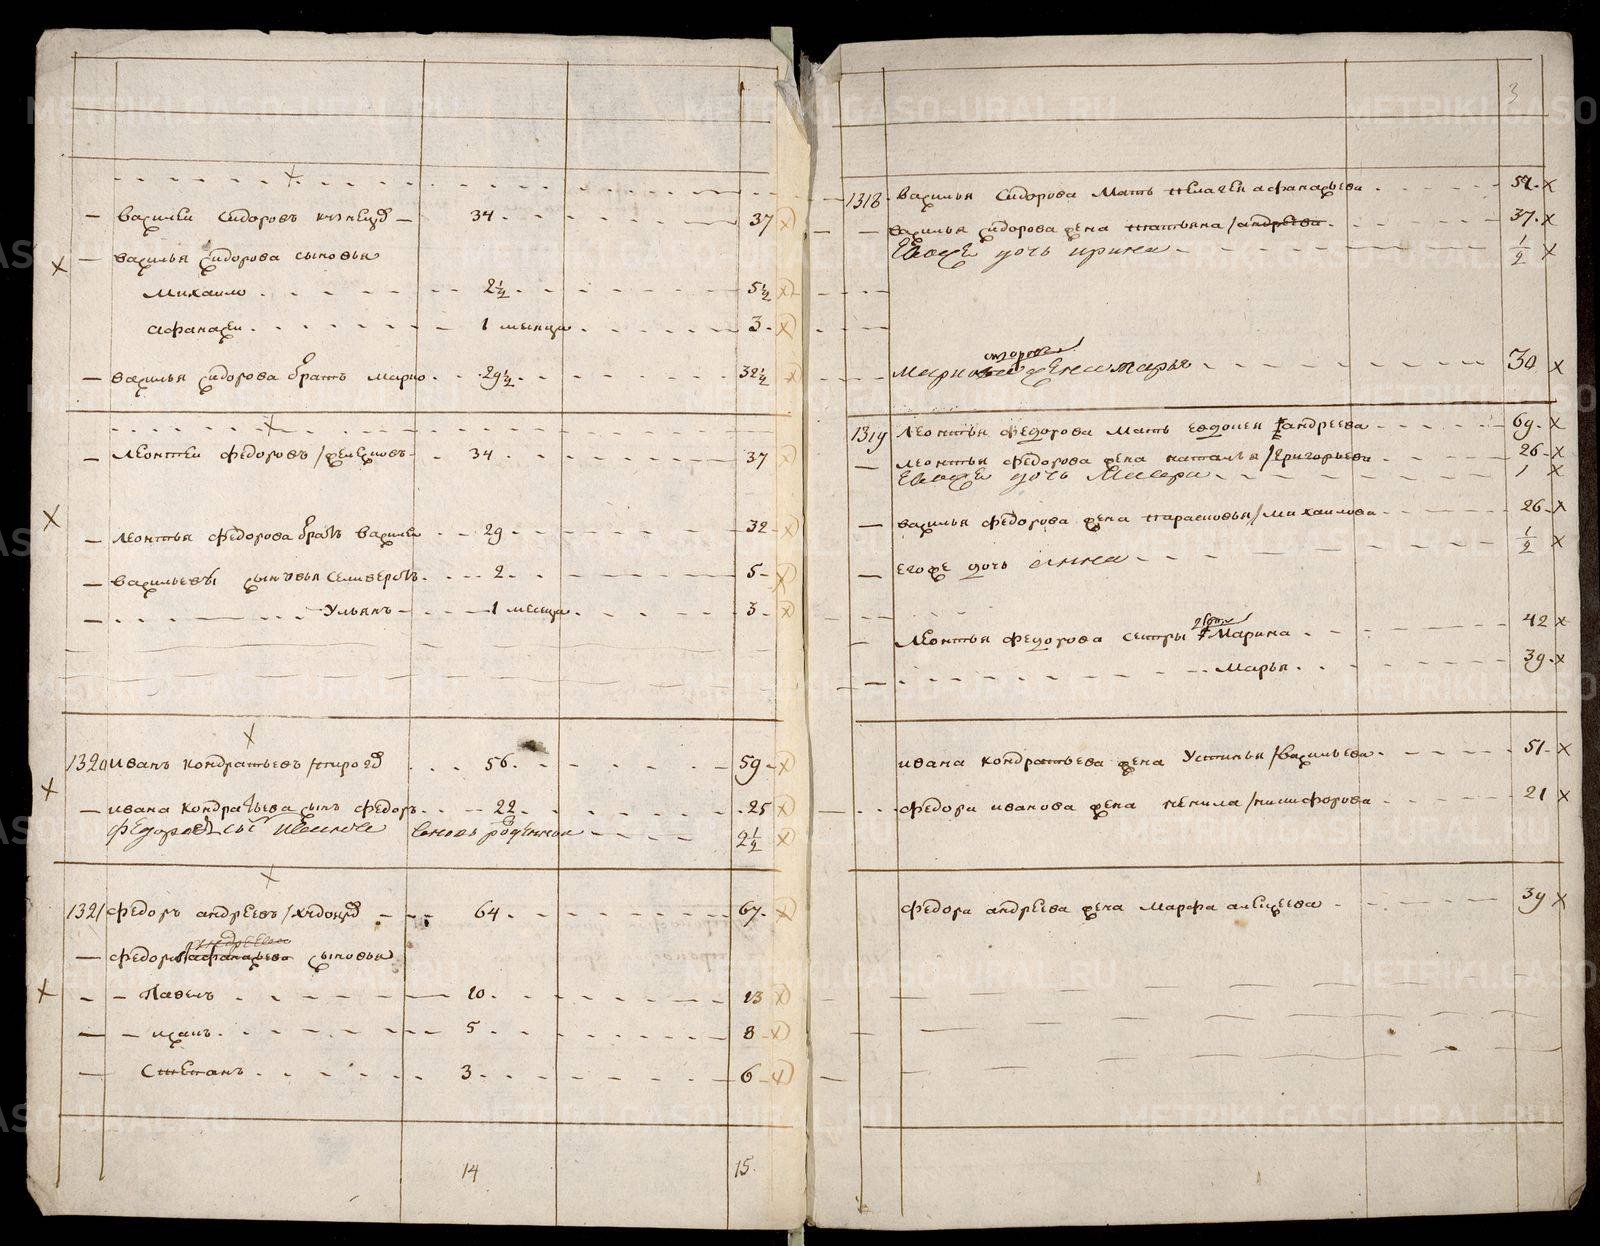 3
Василеи Сидоровъ 34 37
Василья Сидорова сыновья
Михаило 2½ 5½
Афанасеи 1 месяца 3
Василья Сидорова братъ Марко 29½ 32½
Леонтеи Федоровъ 34 37
Леонтья Федорова братъ Василеи 29 32
Васильевы сыновья Селиверстъ 2 5
Ульянъ 1 месяца 3
1320 Иванъ Кондратьевъ 56 59
Ивана Кондратьева сынъ Федоръ 22 25
вновь рожденной 2½
1321 Федоръ Андреевъ 64 67
Федора Афанасьева сыновья
Павелъ 10 13
Иванъ 5 8
Степанъ 3 6
14 15
1318 Василья Сидорова мать Пелагея Афанасьева 59
Василья Сидорова жена Татьяна Андреева 37
Евоже дочь Ирина ½
жена Марья 30
1319 Леонтья Федорова мать Евдокея Андреева 69
Леонтья Федорова жена Наталья Григорьева 26
Евоже дочь 1
Василья Федорова жена Парасковья Михаилова 26
Егоже дочь Анна ½
Леонтья Федорова сестры Марина 42
Марья 39
Ивана Кондратьева жена Устинья Васильева 51
Федора Иванова жена Ненила Никифорова 21
Федора Андреева жена Марфа Алексеева 39
METRIKI.GASO-URAL.RU